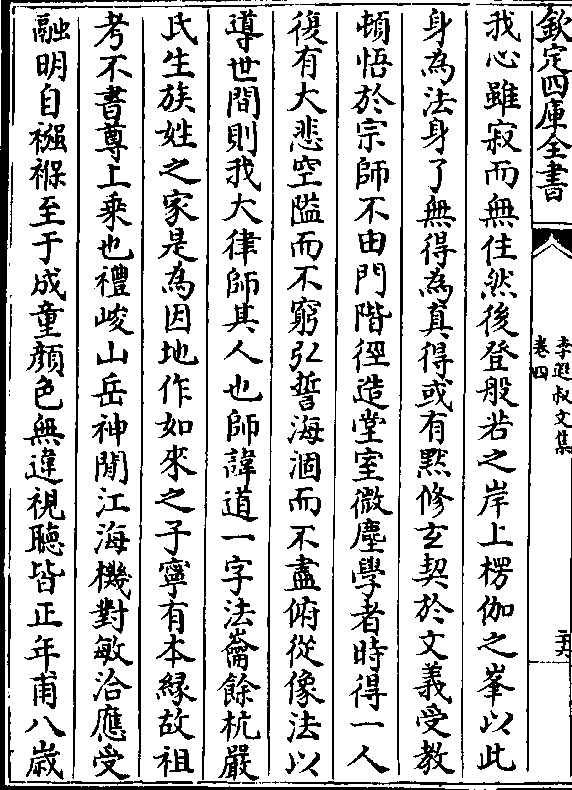 欽定四庫全書
李遐叔文集
卷四
二十六
我心雖寂而無住然後登般若之岸上楞伽之峯以此
身為法身了無得為真得或有黙修玄契於文義受教
頓悟於宗師不由門階徑造堂室微塵學者時得一人
復有大悲空隘而不窮弘誓海涸而不盡俯從像法以
導世間則我大律師其人也師諱道一字法崙餘杭嚴
氏生族姓之家是為因地作如來之子寧有本縁故祖
考不書尊上乘也禮峻山岳神閒江海機對敏洽應受
融明自襁褓至于成童顔色無違視聽皆正年甫八歳